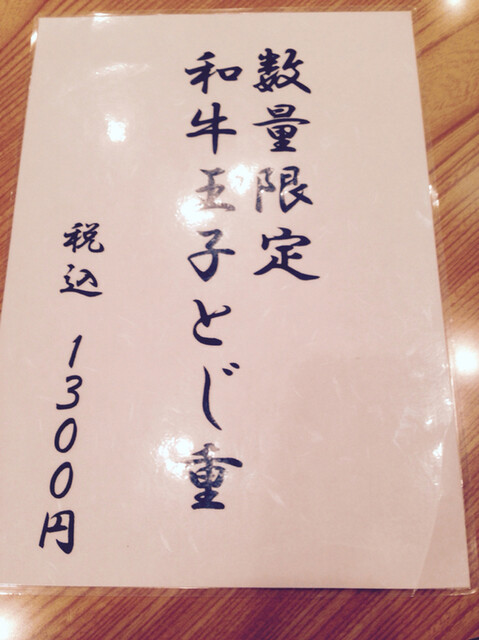 数量限定
和牛玉子とじ重
税込 1300円